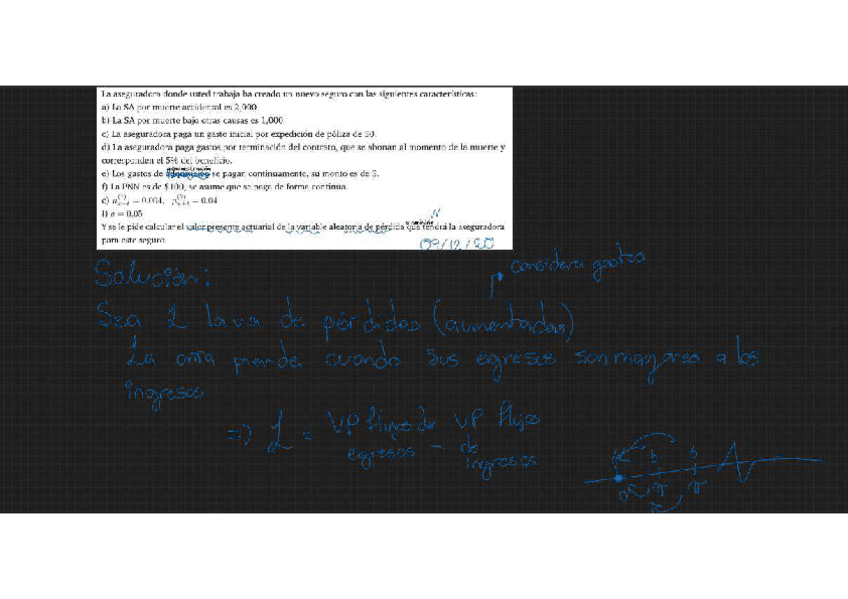 La aseguradora donde usted trabaja ha creado un nuevo seguro con las siguientes características:
a) La SA por muerte accidental es 2,000
b) La SA por muerte bajo otras causas es 1,000
c) La aseguradora paga un gasto inicial por expedición de póliza de 50.
d) La aseguradora paga gastos por terminación del contrato, que se abonan al momento de la muerte y
corresponden el 5% del beneficio.
e) Los gastos de se pagan continuamente, su monto es de 3.
f) La PNN es de $100, se asume que se paga de forma continua.
= 0.004, = 0.04
= 0.05
Y se le pide calcular el valor presente actuarial de la variable aleatoria de pérdida que tendrá la aseguradora
para este seguro.
09/12/20
Solución:
considera gastos
Sea L la va de pérdidas (aumentadas)
La cñía pierde cuando sus egresos son mayores a los
ingresos
=> L = VP flujos de egresos - VP flujos de ingresos